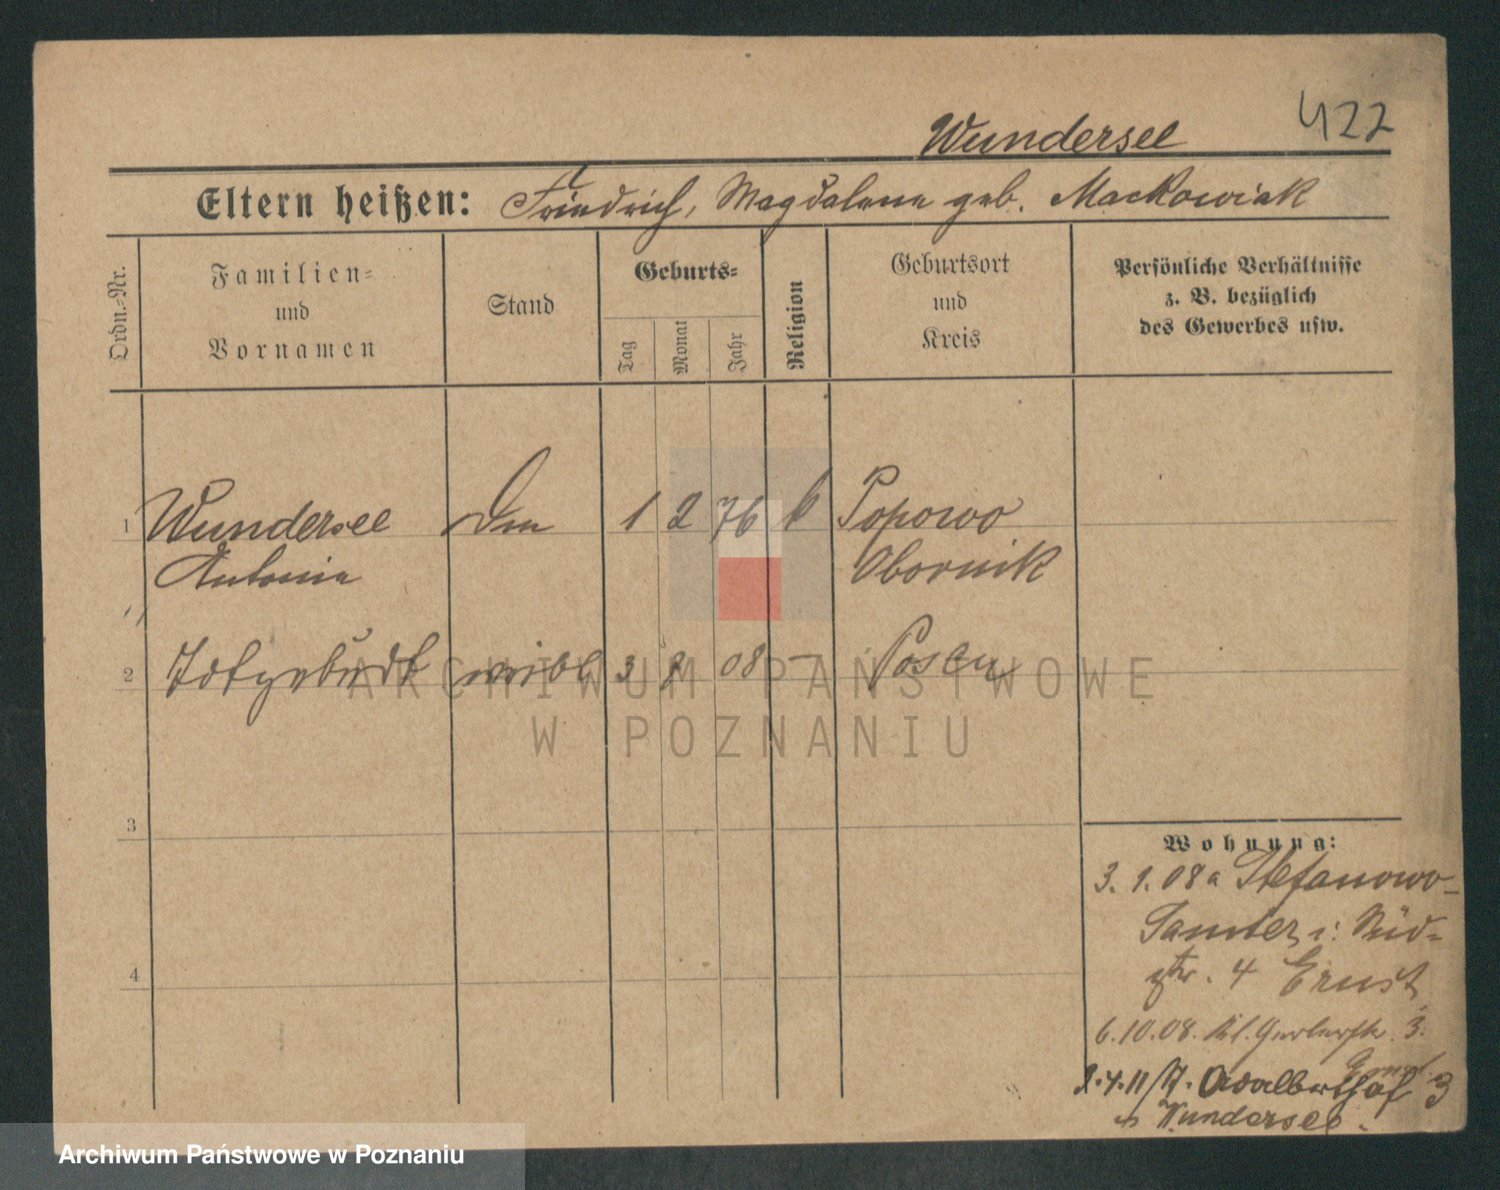 422
Wundersee
Eltern heißen: Friedrich, Magdalene geb. Mackowiak
Ordn.-Nr.
Familien-
und
Vornamen
Stand
Geburts-
Tag
Monat
Jahr
Religion
Geburtsort
und
Kreis
Persönliche Verhältnisse
z. B. bezüglich
des Gewerbes usw.
1 Wundersee 1 2 76 k Popowo
Antonie Obornik
2 Totgeburt weibl 3 8 08 — Posen
3
4
Wohnung:
3. 1. 08 a Stefanowo-
Samter, i.
4 Ernst
6.10.08. Kl. Gerberstr. 3.
2.4.11/ Adalberthof 3
Wundersee.
ARCHIWUM PAŃSTWOWE
W POZNANIU
Archiwum Państwowe w Poznaniu